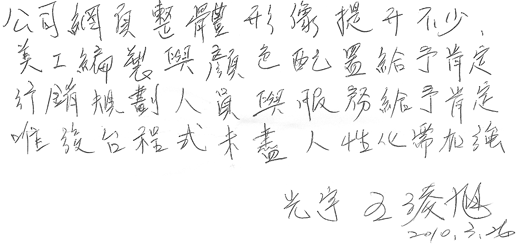 公司網頁整體形像提升不少,
美工編製與顏色配置給予肯定
行銷規劃人員與服務給予肯定
唯後台程式未盡人性化需加強
光宇 王
2010.3.26